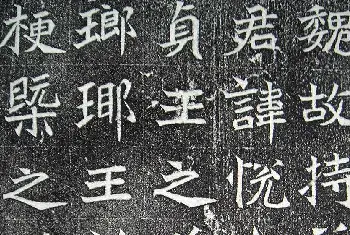 魏故持
君諱悦
貞王之
瑯琊王
梗槩之